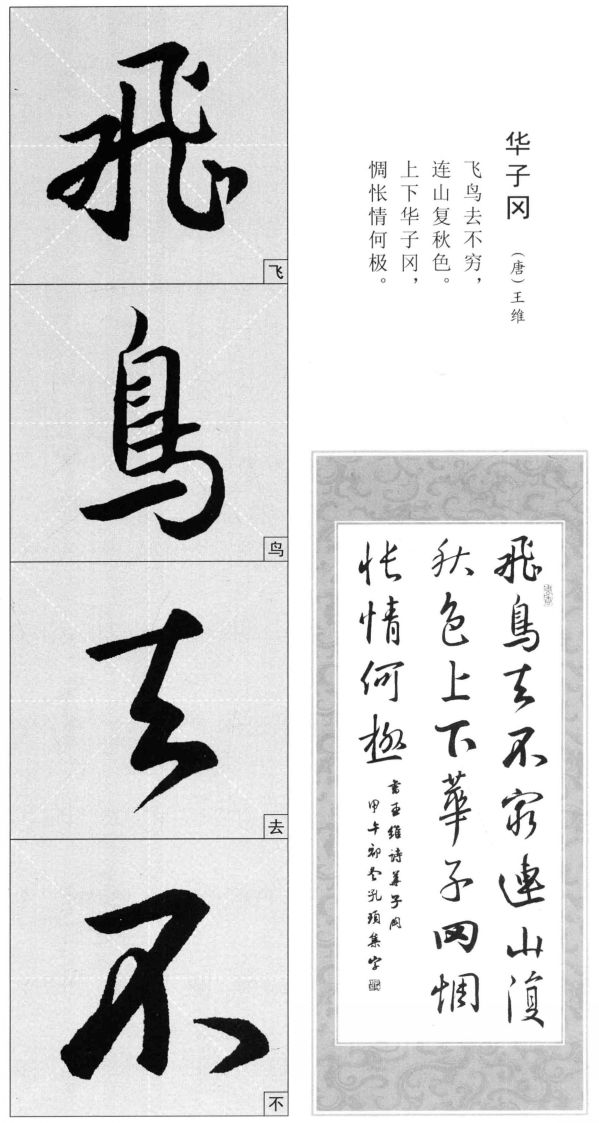 华子冈
（唐）王维
飞鸟去不穷，
连山复秋色。
上下华子冈，
惆怅情何极。
飛
飞
鳥
鸟
去
去
不
不
飛鳥去不窮連山復
秋色上下華子岡惆
悵情何極
書王維詩華子岡
甲午初冬孔頊集字